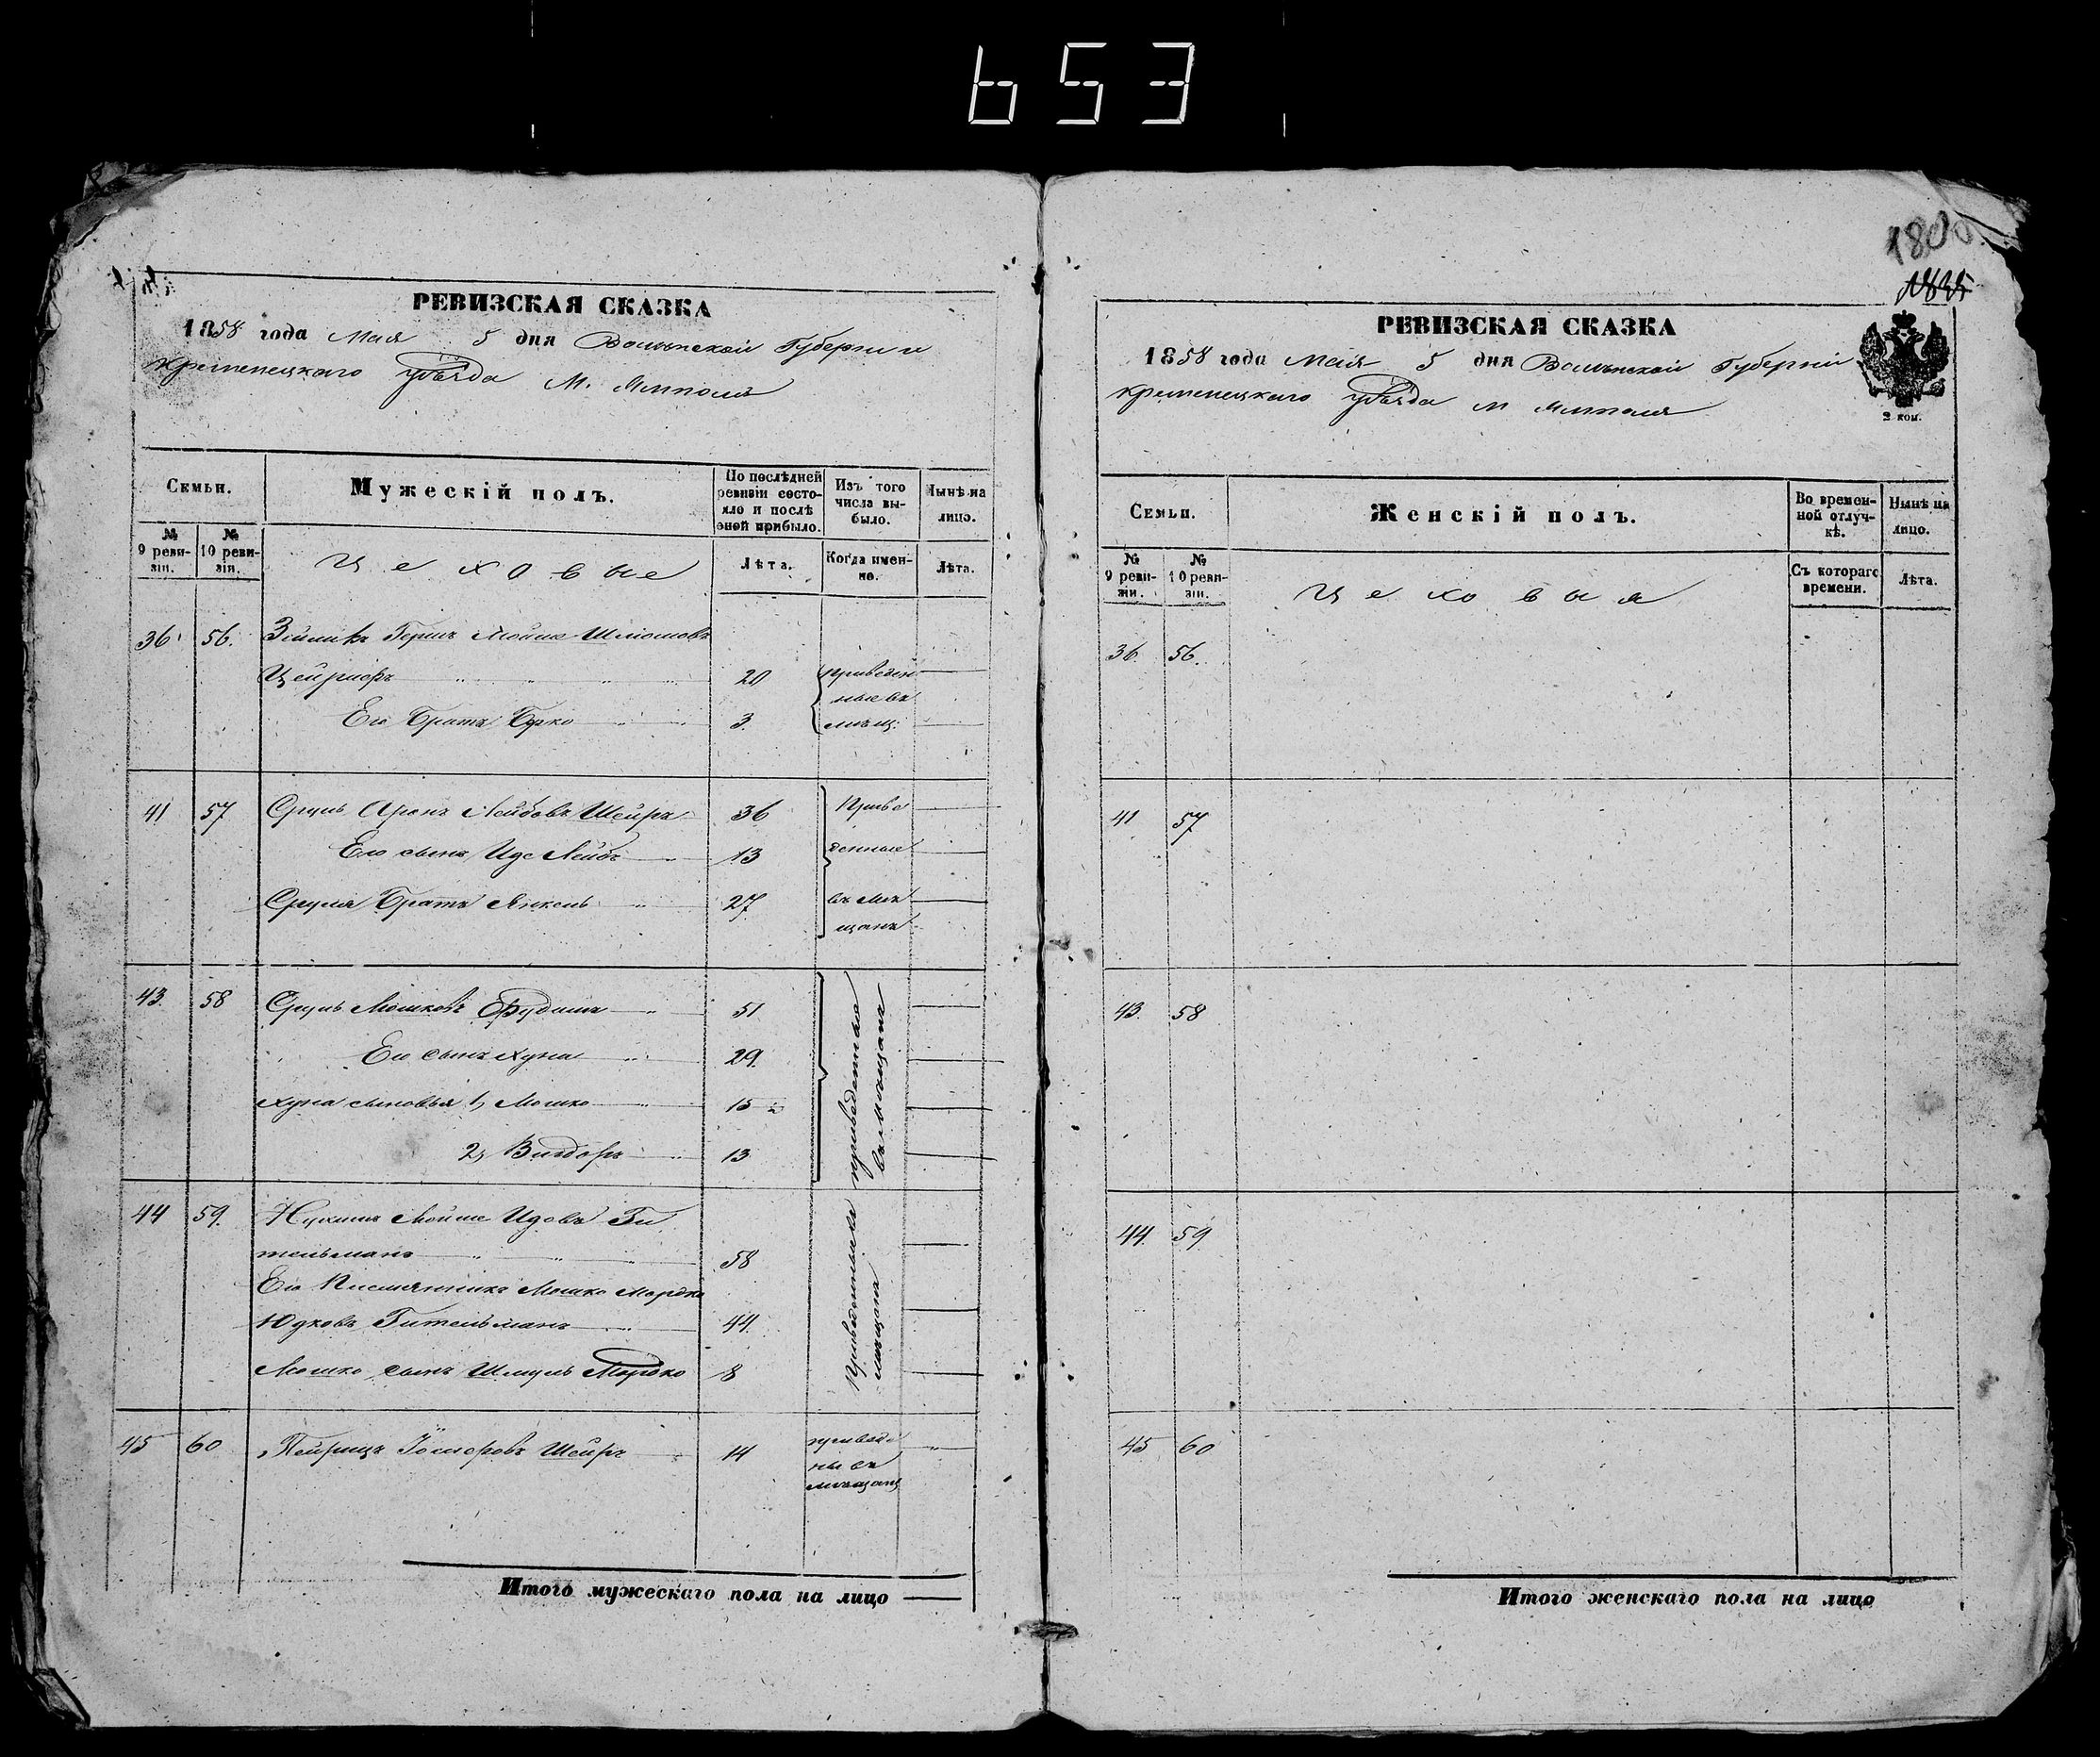 653
1800
1835
РЕВИЗСКАЯ СКАЗКА
1858 года Мая 5 дня Волынской Губернии
Кременецкого уѣзда М. Ямполь
Семьи.
№ 9 ревизіи.
№ 10 ревизіи.
Мужескій полъ.
Цеховые
По послѣдней ревизіи состояло и послѣ оной прибыло.
Лѣта.
Изъ того числа выбыло.
Когда именно.
Нынѣ на лицо.
Лѣта.
36 56. Зейликъ Гершъ Мойше Шлiомовъ
Цейриферъ 20 приведен
Его Братъ Берко 3. ные въ
мѣщ.
41 57 Сруль Аронъ Лейбовъ Шейръ 36 Приве
Его сынъ Иде Лейбъ 13 денные
Сруля Братъ Янкель 27 въ мѣ
щане
43. 58 Сруль Мошковъ 51
Его сынъ Хуна 29.
Хуна сыновья 1, Мошко 15
2, 13
приведенные
въ мѣщане
44 59. Нухимъ Мойше Идовъ Ги
тельманъ 58
Его Племянникъ Мошко Мордко
Юдковъ Гительманъ 44.
Мошко сынъ Шмуль Мордко 8
Приведенные въ
мѣщане
45 60 Шейръ 14 приведе
ны въ
мѣщане
Итого мужескаго пола на лицо —
РЕВИЗСКАЯ СКАЗКА
1858 года Мая 5 дня Волынской Губерніи
Кременецкого уѣзда м Ямполя
2 коп.
Семьи.
№ 9 ревизіи.
№ 10 ревизіи.
Женскій полъ.
Цеховыя
Во временной отлучкѣ.
Съ котораго времени.
Нынѣ на лицо.
Лѣта.
36. 56.
41 57
43. 58
44. 59
45 60
Итого женскаго пола на лицо